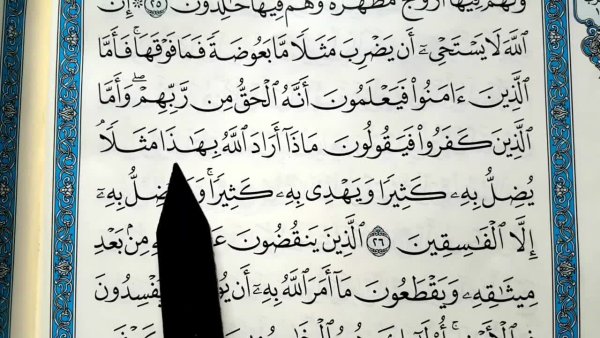 وَلَهُمْ فِيهَآ أَزْوَٰجٌ مُّطَهَّرَةٌ وَهُمْ فِيهَا خَٰلِدُونَ ٢٥ ۞ إِنَّ
ٱللَّهَ لَا يَسْتَحْىِۦٓ أَن يَضْرِبَ مَثَلًا مَّا بَعُوضَةً فَمَا فَوْقَهَا ۚ فَأَمَّا
ٱلَّذِينَ ءَامَنُوا۟ فَيَعْلَمُونَ أَنَّهُ ٱلْحَقُّ مِن رَّبِّهِمْ ۖ وَأَمَّا
ٱلَّذِينَ كَفَرُوا۟ فَيَقُولُونَ مَاذَآ أَرَادَ ٱللَّهُ بِهَٰذَا مَثَلًا ۘ
يُضِلُّ بِهِۦ كَثِيرًا وَيَهْدِى بِهِۦ كَثِيرًا ۚ بِهِۦٓ
إِلَّا ٱلْفَٰسِقِينَ ٢٦ ٱلَّذِينَ يَنقُضُونَ مِنۢ بَعْدِ
مِيثَٰقِهِۦ وَيَقْطَعُونَ مَآ أَمَرَ ٱللَّهُ بِهِۦٓ أَن